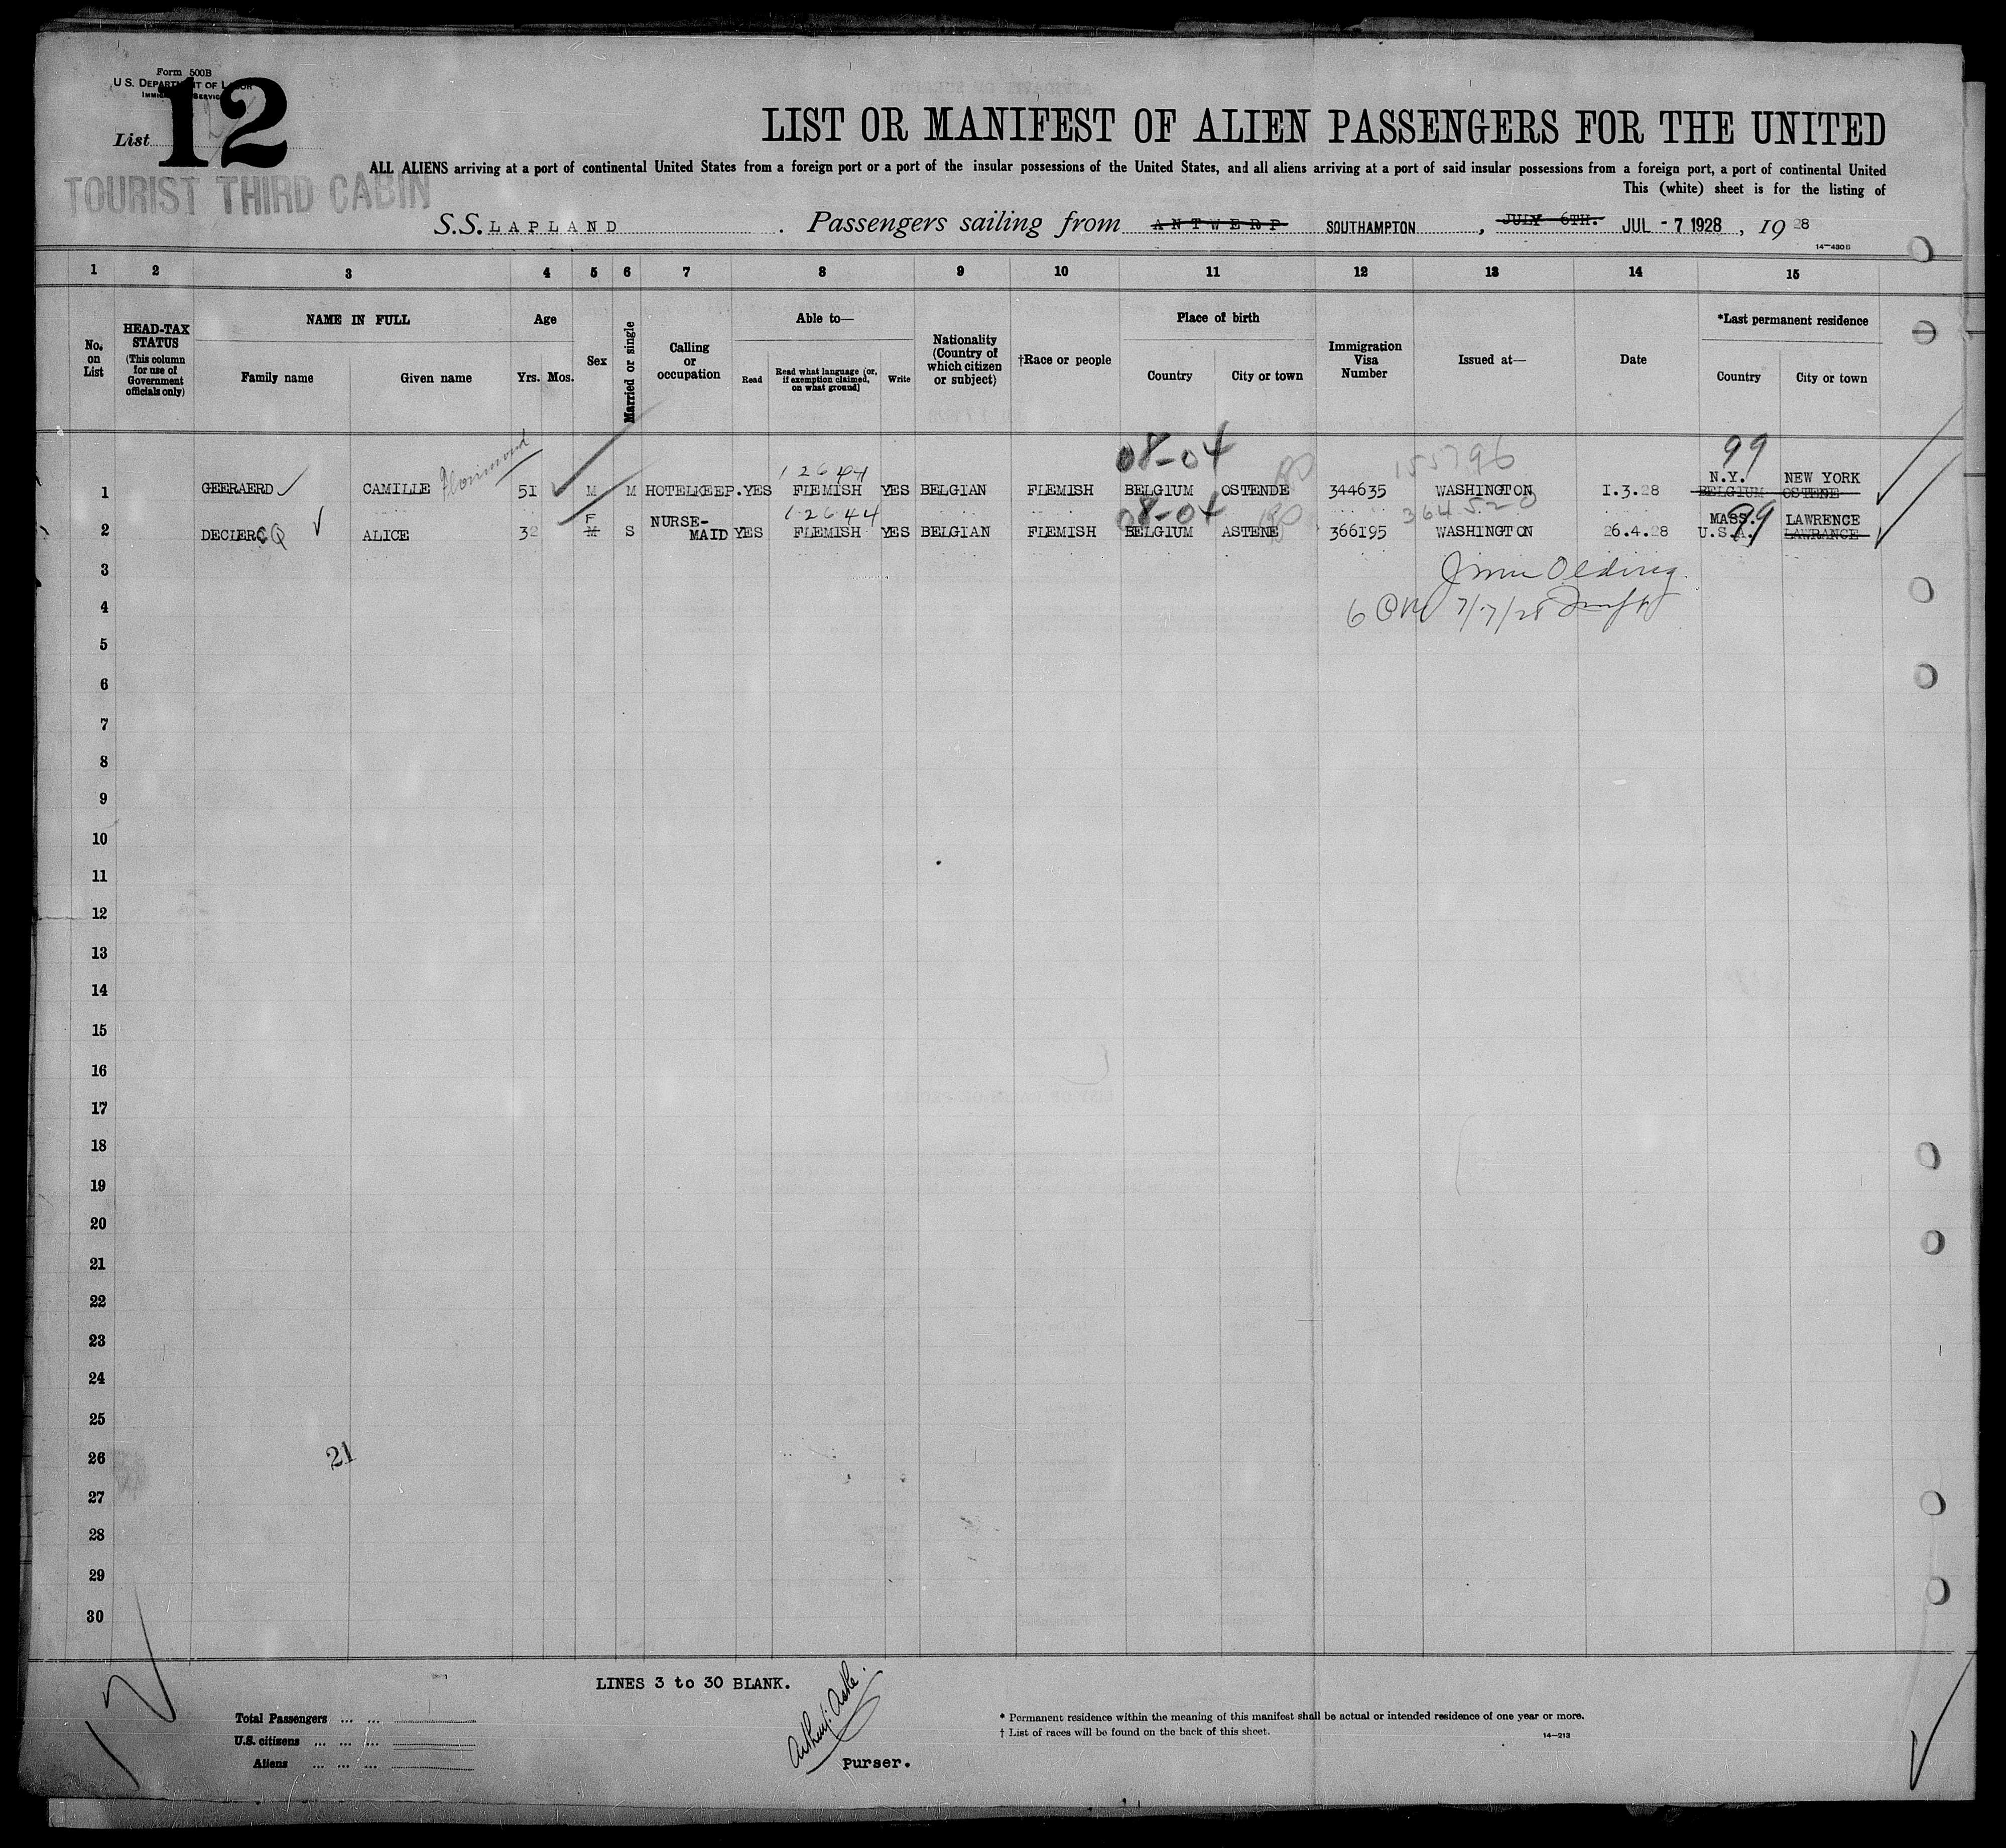 Form 500B
U.S. DEPARTMENT OF LABOR
IMMIGRATION SERVICE
List 12
LIST OR MANIFEST OF ALIEN PASSENGERS FOR THE UNITED
ALL ALIENS arriving at a port of continental United States from a foreign port or a port of the insular possessions of the United States, and all aliens arriving at a port of said insular possessions from a foreign port, a port of continental United
This (white) sheet is for the listing of
TOURIST THIRD CABIN
S.S. LAPLAND . Passengers sailing from ANTWERP SOUTHAMPTON , JULY 6TH. JUL - 7 1928 , 19 28
14-430B
1 2 3 4 5 6 7 8 9 10 11 12 13 14 15
No. on List
HEAD-TAX STATUS (This column for use of Government officials only)
NAME IN FULL
Family name Given name
Age
Yrs. Mos.
Sex
Married or single
Calling or occupation
Able to—
Read Read what language (or, if exemption claimed, on what ground) Write
Nationality (Country of which citizen or subject)
†Race or people
Place of birth
Country City or town
Immigration Visa Number
Issued at—
Date
*Last permanent residence
Country City or town
12644 08-04 155796 99
N.Y. NEW YORK
1 GEERAERD CAMILLE 51 M M HOTELKEEP. YES FLEMISH YES BELGIAN FLEMISH BELGIUM OSTENDE 344635 WASHINGTON I.3.28 BELGIUM OSTENE
12644 08-04 364520 99
F NURSE- MASS. LAWRENCE
2 DECLERCQ ALICE 32 M S MAID YES FLEMISH YES BELGIAN FLEMISH BELGIUM ASTENE 366195 WASHINGTON 26.4.28 U.S.A. LAWRANCE
3
4
5
6
7
8
9
10
11
12
13
14
15
16
17
18
19
20
21
22
23
24
25
26 21
27
28
29
30
LINES 3 to 30 BLANK.
Total Passengers ... ...
U.S. citizens ... ... ...
Aliens ... ... ...
Purser.
* Permanent residence within the meaning of this manifest shall be actual or intended residence of one year or more.
† List of races will be found on the back of this sheet.
14-213